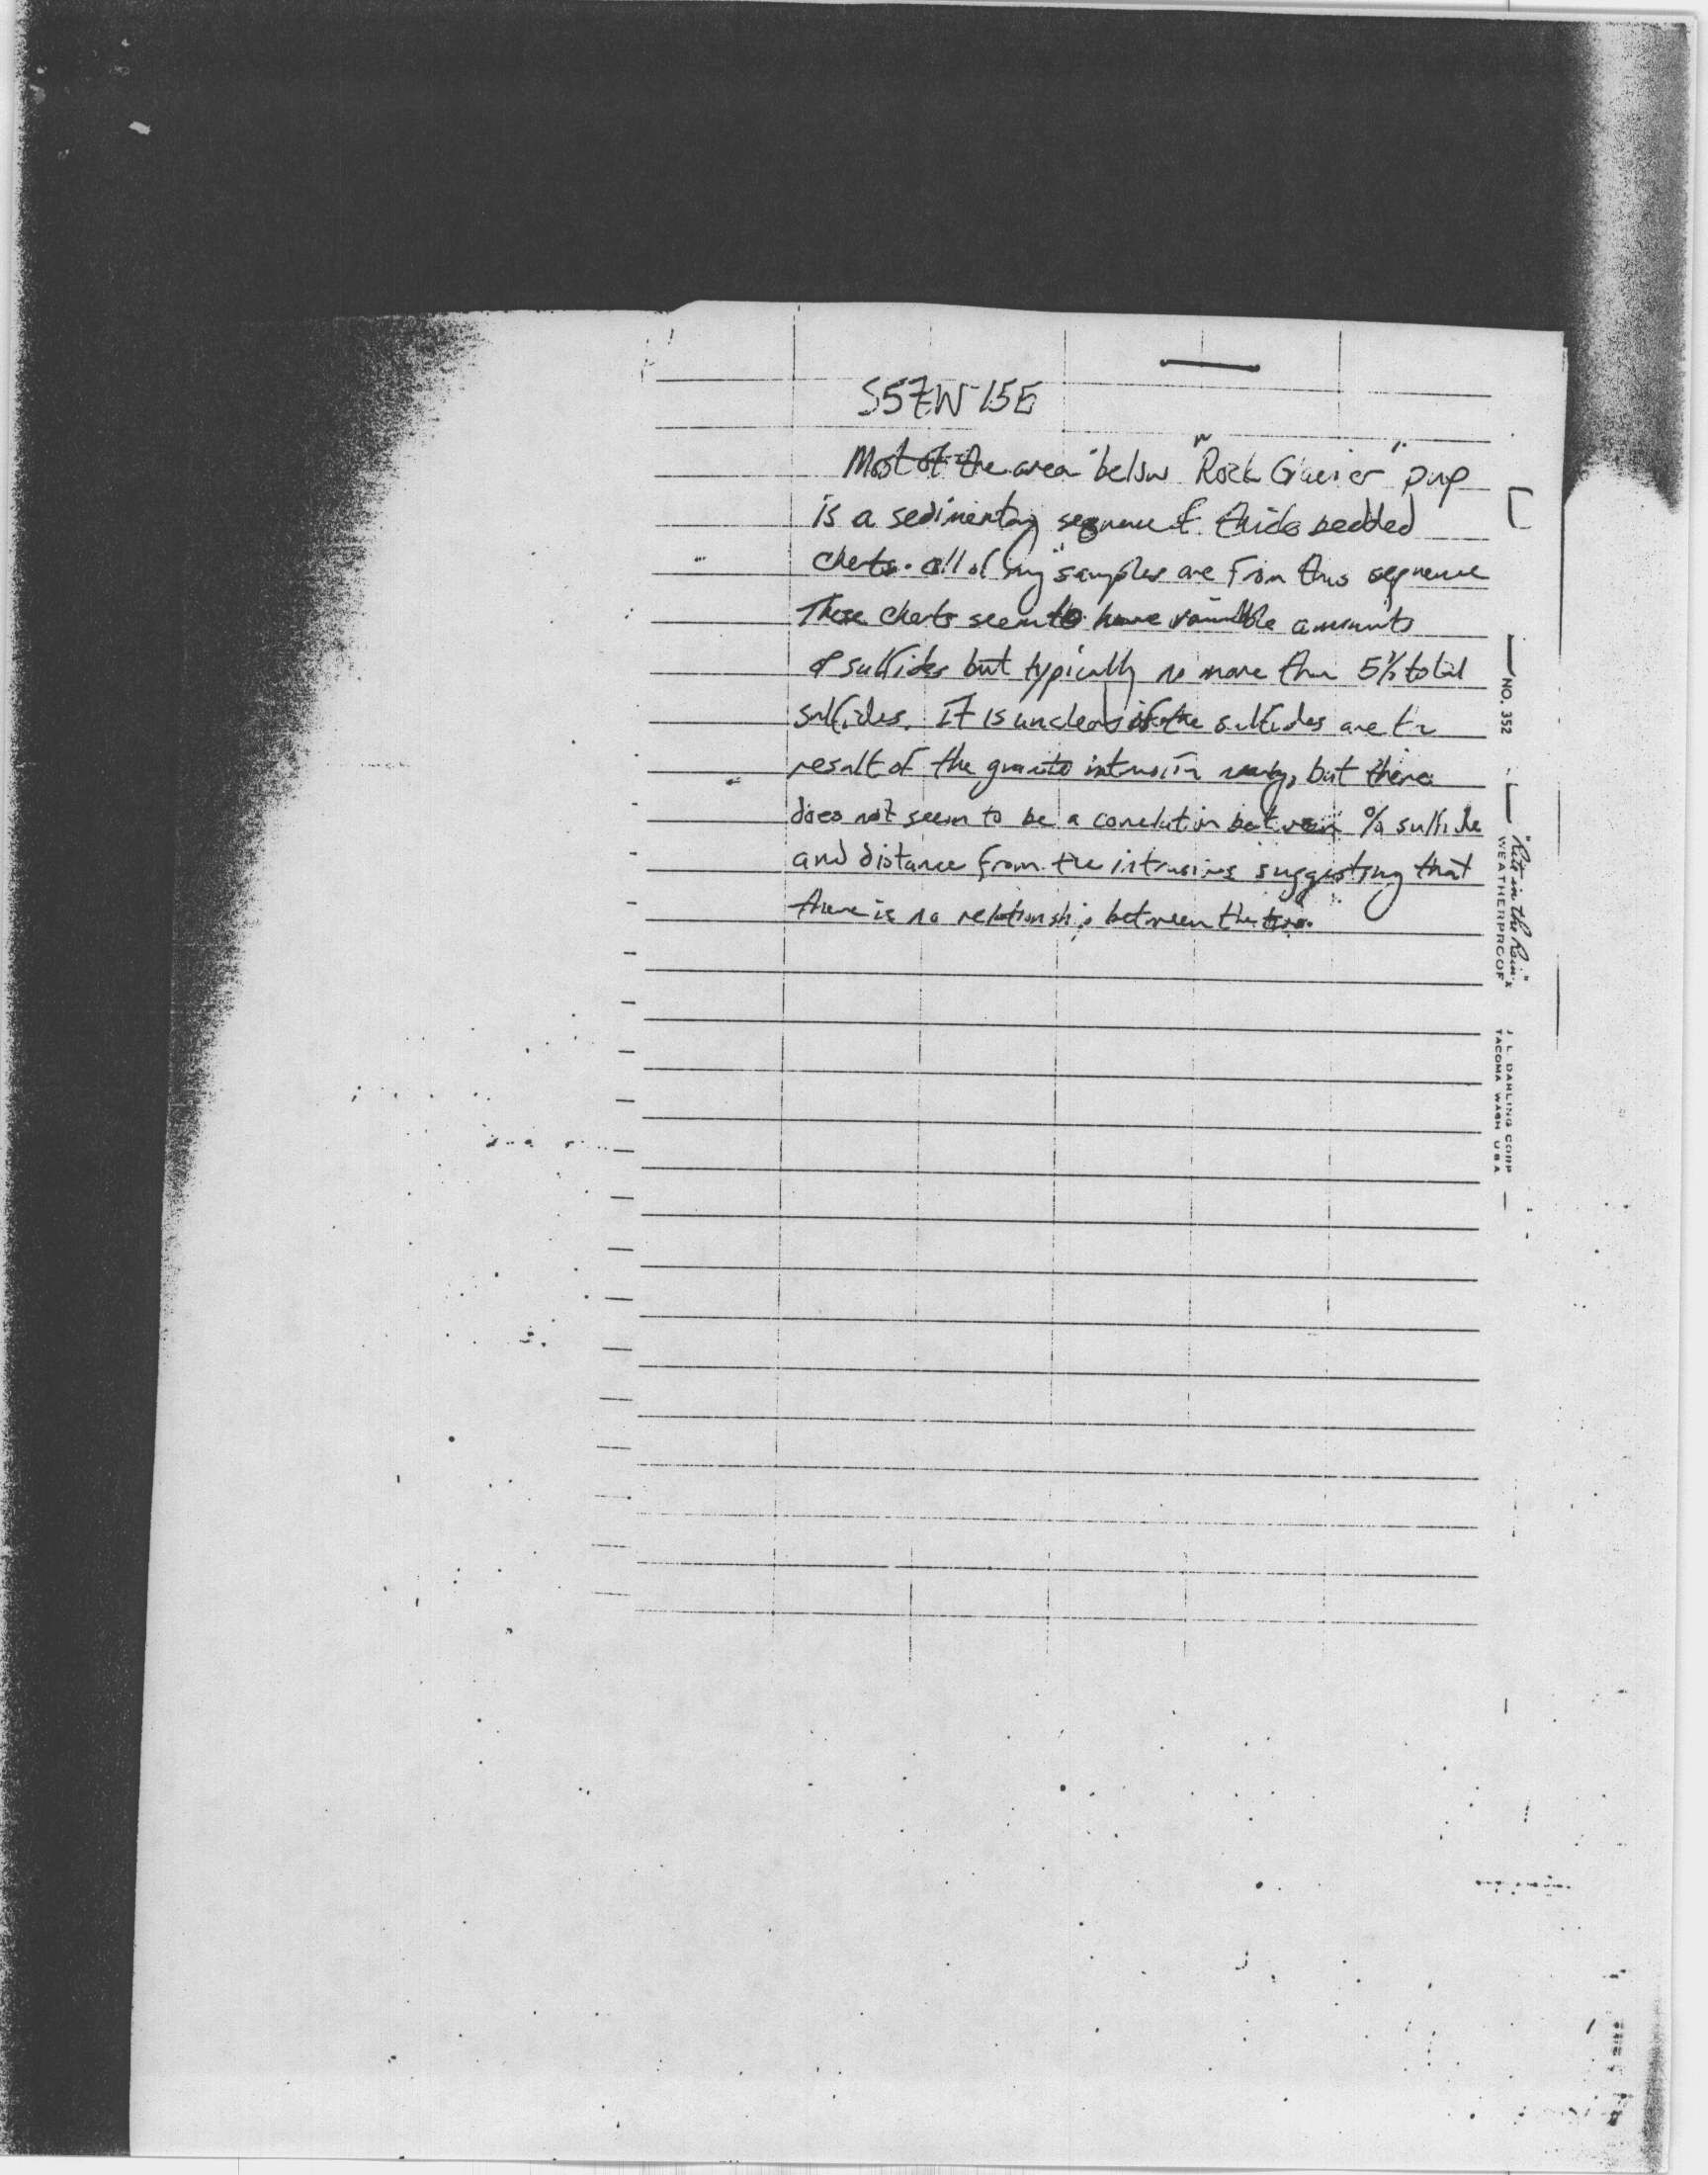 S57W 15E
Most of the area below "Rock Glacier" pup
is a sedimentary sequence of thick bedded
cherts. all of my samples are from this sequence
These cherts seem to have variable amounts
of sulfides but typically no more than 5% total
sulfides. It is unclear if the sulfides are the
result of the granite intrusion nearby, but there
does not seem to be a correlation between % sulfide
and distance from the intrusive suggesting that
there is no relationship between the two.
NO. 352
"Rite in the Rain"
WEATHERPROOF
J. L. DARLING CORP
TACOMA WASH USA